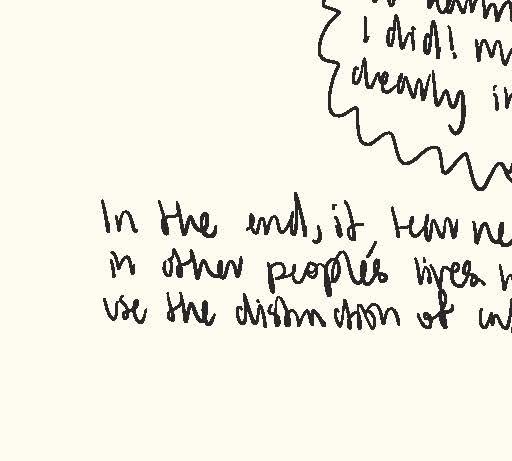 I did! m
clearly in
In the end, it, tear ne
in other people's lives
use the distinction of